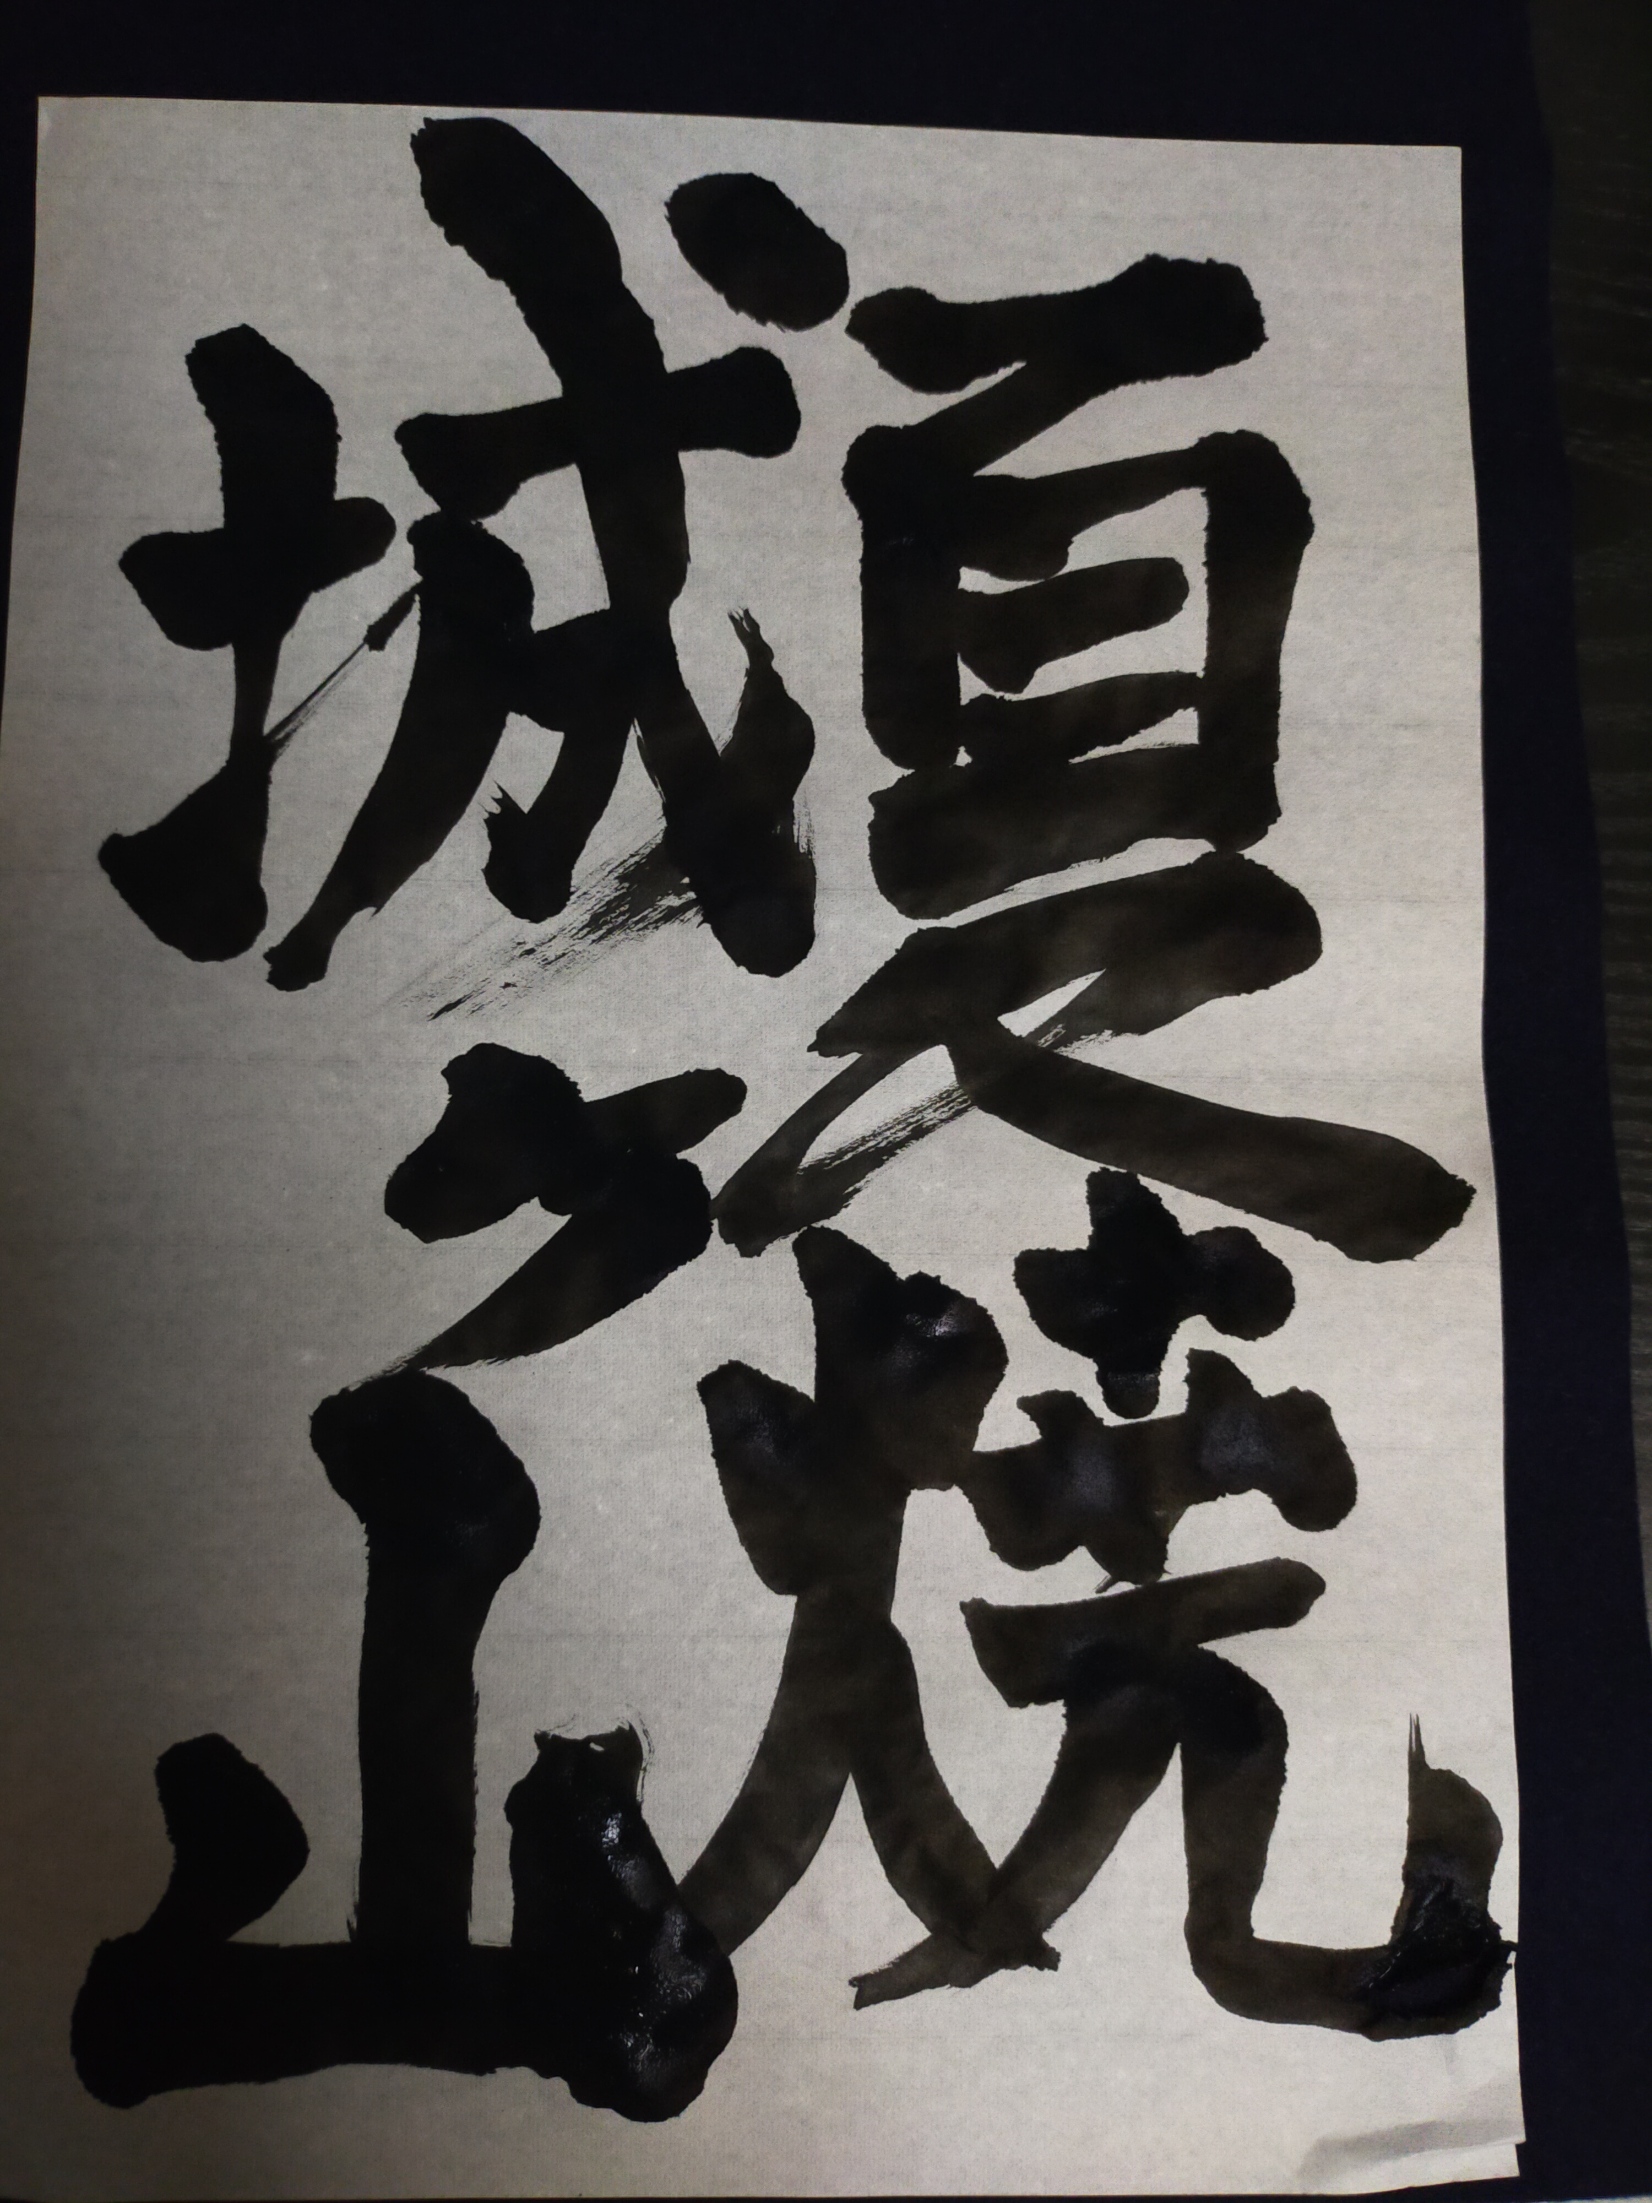 夏焼
城ヶ山